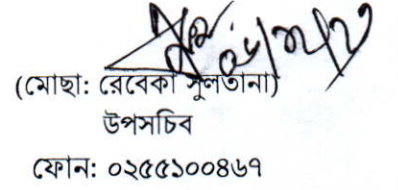 (মোছা: রেবেকা সুলতানা)
উপসচিব
ফোন: ০২৫৫১০০৪৬৭